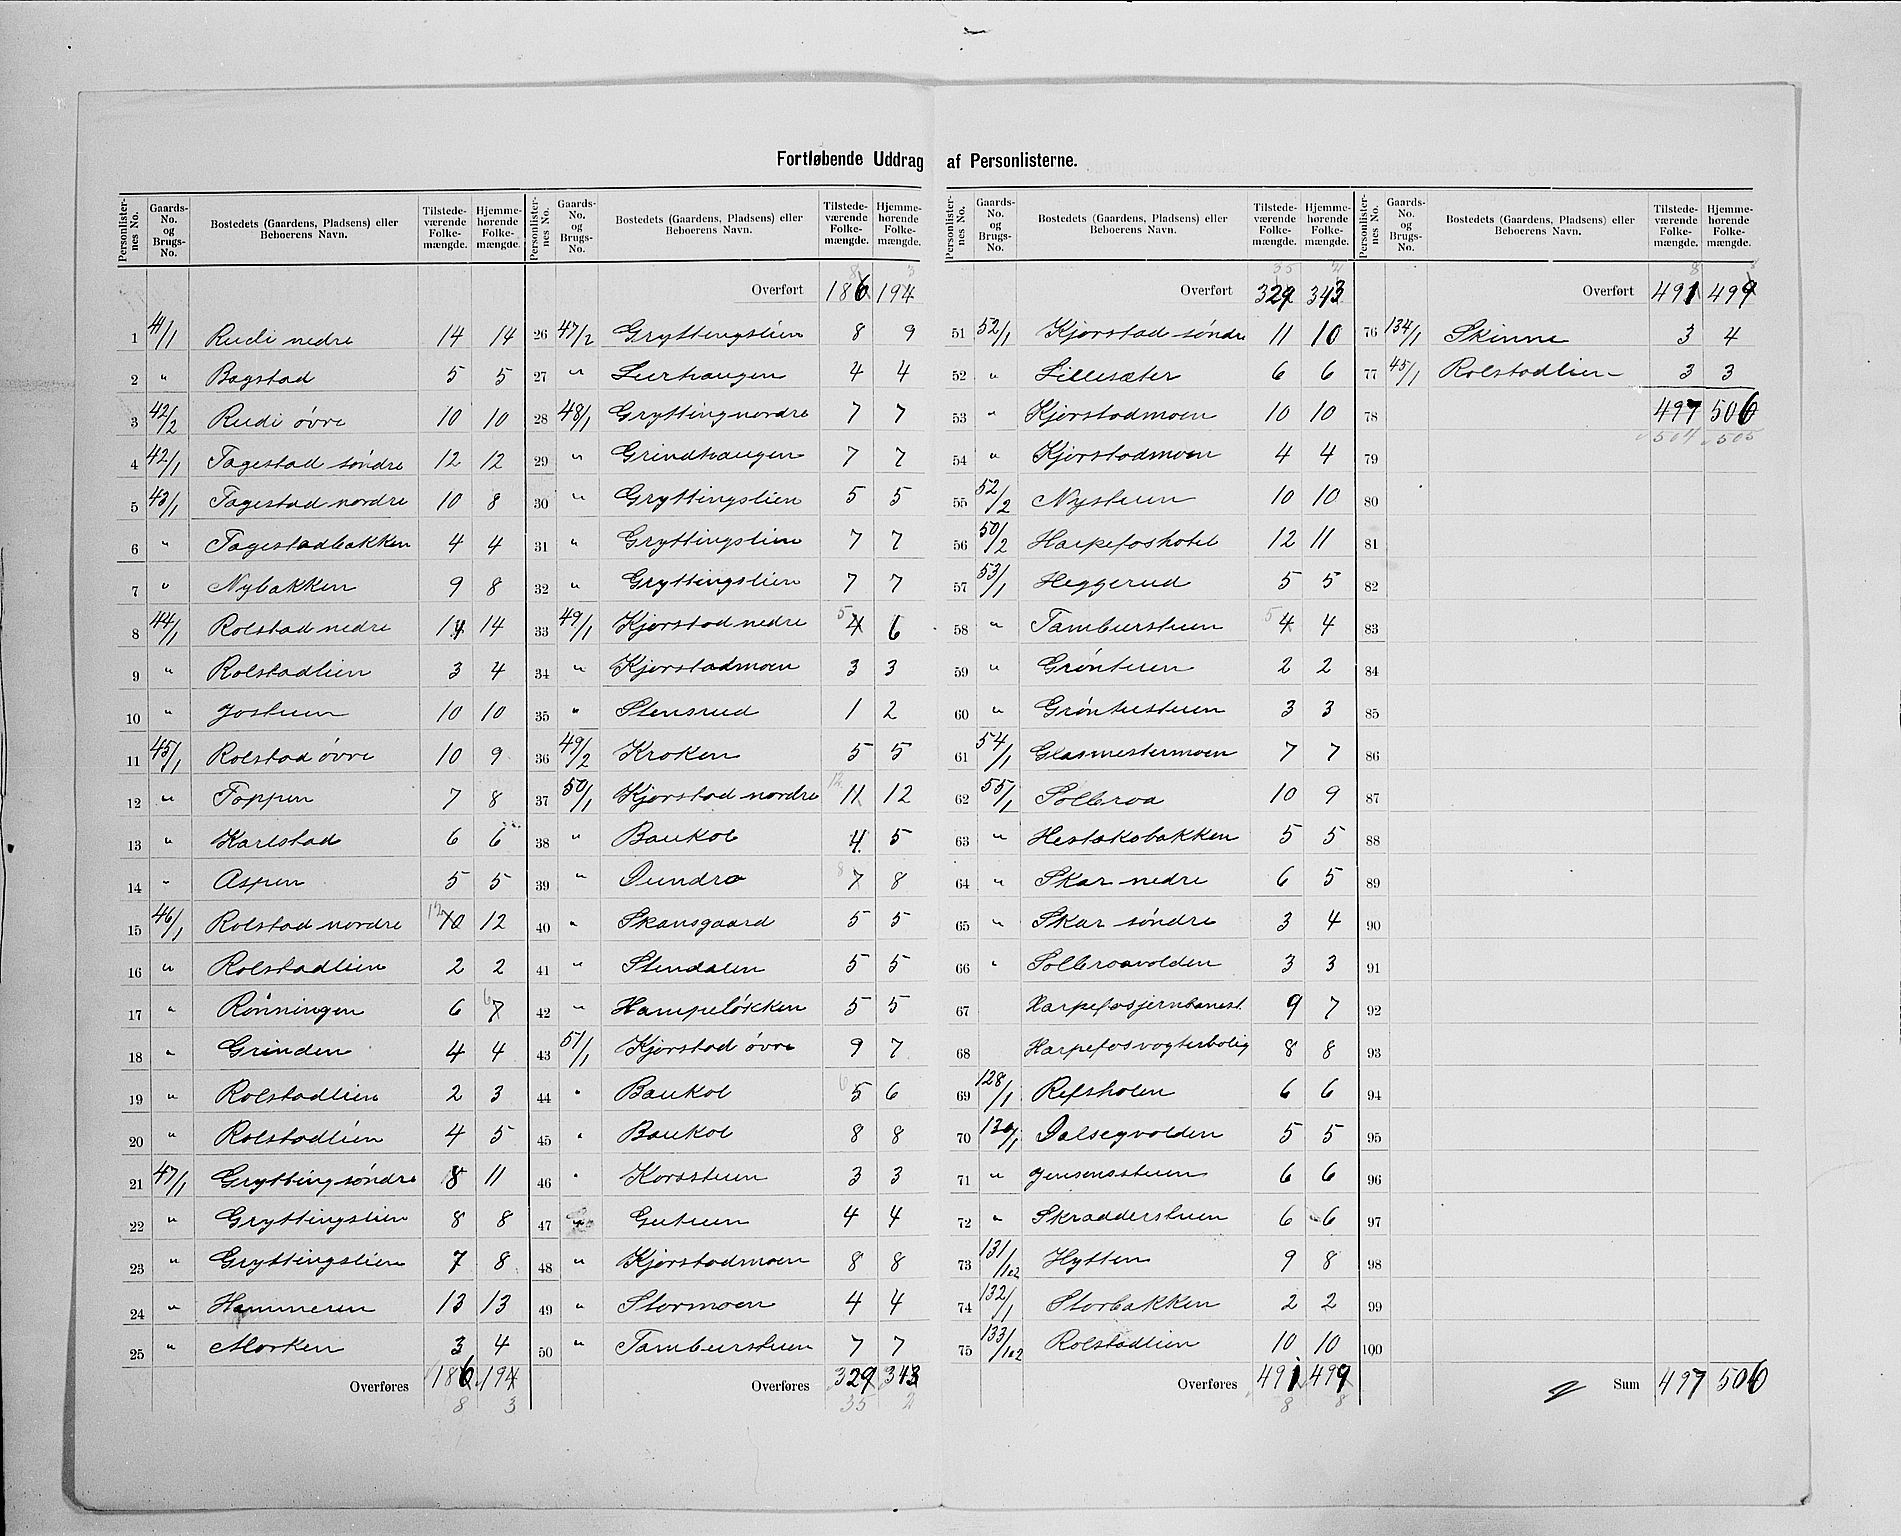 Fortløbende Uddrag af Personlisterne.
Personlisternes No. | Gaards-No. og Brugs-No. | Bostedets (Gaardens, Pladsens) eller Beboerens Navn. | Tilstedeværende Folkemængde. | Hjemmehørende Folkemængde.
1 41/1 Rudi nedre 14 14
2 " Bagstad 5 5
3 42/2 Rudi øvre 10 10
4 42/1 Tagestad søndre 12 12
5 43/1 Tagestad nordre 10 8
6 " Tagestadbakken 4 4
7 " Nybakken 9 8
8 44/1 Rolstad nedre 14 14
9 " Rolstadlien 3 4
10 " Jostuen 10 10
11 45/1 Rolstad øvre 10 9
12 " Toppen 7 8
13 " Karlstad 6 6
14 " Aspen 5 5
15 46/1 Rolstad nordre 12 10 12
16 " Rolstadlien 2 2
17 " Rønningen 6 6 7
18 " Grinden 4 4
19 " Rolstadlien 2 3
20 " Rolstadlien 4 5
21 47/1 Grytting søndre 8 11
22 " Gryttingslien 8 8
23 " Gryttingslien 7 8
24 " Hammeren 13 13
25 " Morken 3 4
Overføres 186 194
8 3
Personlisternes No. | Gaards-No. og Brugs-No. | Bostedets (Gaardens, Pladsens) eller Beboerens Navn. | Tilstedeværende Folkemængde. | Hjemmehørende Folkemængde.
8 3
Overført 186 194
26 47/2 Gryttingslien 8 9
27 " Leirhaugen 4 4
28 48/1 Grytting nordre 7 7
29 " Grindhaugen 7 7
30 " Gryttingslien 5 5
31 " Gryttingslien 7 7
32 " Gryttingslien 7 7
33 49/1 Kjørstad nedre 5 4 6
34 " Kjørstadmoen 3 3
35 " Stensrud 1 2
36 49/2 Kroken 5 5
37 50/1 Kjørstad nordre 12 11 12
38 " Baukol 4 5
39 " Dundra 8 7 8
40 " Skansgaard 5 5
41 " Stendalen 5 5
42 " Hampeløkken 5 5
43 51/1 Kjørstad øvre 9 7
44 " Baukol 6 5 6
45 " Baukol 8 8
46 " Korsstuen 3 3
47 Gutuen 4 4
48 " Kjørstadmoen 8 8
49 " Stormoen 4 4
50 " Tamburstuen 7 7
Overføres 329 343
35 2
Personlisternes No. | Gaards-No. og Brugs-No. | Bostedets (Gaardens, Pladsens) eller Beboerens Navn. | Tilstedeværende Folkemængde. | Hjemmehørende Folkemængde.
35 2
Overført 329 343
51 52/1 Kjørstad søndre 11 10
52 " Lillesæter 6 6
53 " Kjørstadmoen 10 10
54 " Kjørstadmoen 4 4
55 52/2 Nystuen 10 10
56 50/2 Harpefoshotel 12 11
57 53/1 Heggerud 5 5
58 " Tamburstuen 5 4 4
59 " Grøntuen 2 2
60 " Grøntustuen 3 3
61 54/1 Glasmestermoen 7 7
62 55/1 Solbraa 10 9
63 " Hestskobakken 5 5
64 " Skar nedre 6 5
65 " Skar søndre 3 4
66 " Solbraavolden 3 3
67 Harpefosjernbanest. 9 7
68 Harpefosvogterbolig 8 8
69 128/1 Refsholen 6 6
70 130/1 Dalsegvolden 5 5
71 " Jensensstuen 6 6
72 " Skradderstuen 6 6
73 131/1&2 Hytten 9 8
74 132/1 Storbakken 2 2
75 133/1&2 Rolstadlien 10 10
Overføres 491 499
8 8
Personlisternes No. | Gaards-No. og Brugs-No. | Bostedets (Gaardens, Pladsens) eller Beboerens Navn. | Tilstedeværende Folkemængde. | Hjemmehørende Folkemængde.
8
Overført 491 499
76 134/1 Skinne 3 4
77 45/1 Rolstadlien 3 3
78 497 506
504 505
79
80
81
82
83
84
85
86
87
88
89
90
91
92
93
94
95
96
97
98
99
100
Sum 497 506